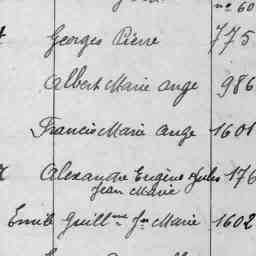 nº 60
Georges Pierre 775
Albert Marie Ange 986
Francis Marie Ange 1601
Alexandre Eugène Jules 176
Jean Marie
Emile Guillme Jn Marie 1602